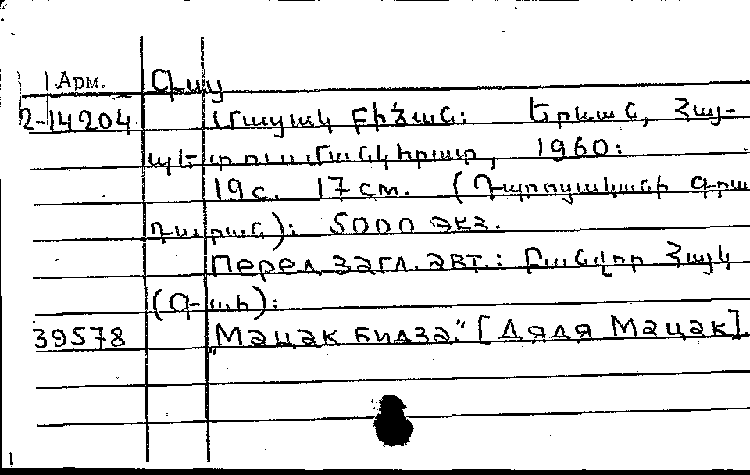 Арм. Գայ
2-14204 Մացակ բիձան: Երևան, Հայ-
պետուսմանկհրատ, 1960:
19с. 17 см. (Դպրոցականի գրա
դարան): 5000 экз.
Перед загл. авт.: Բանվոր Հայկ
(Գ-ահ):
39578 "Мацак бидза." [Дядя Мацак].